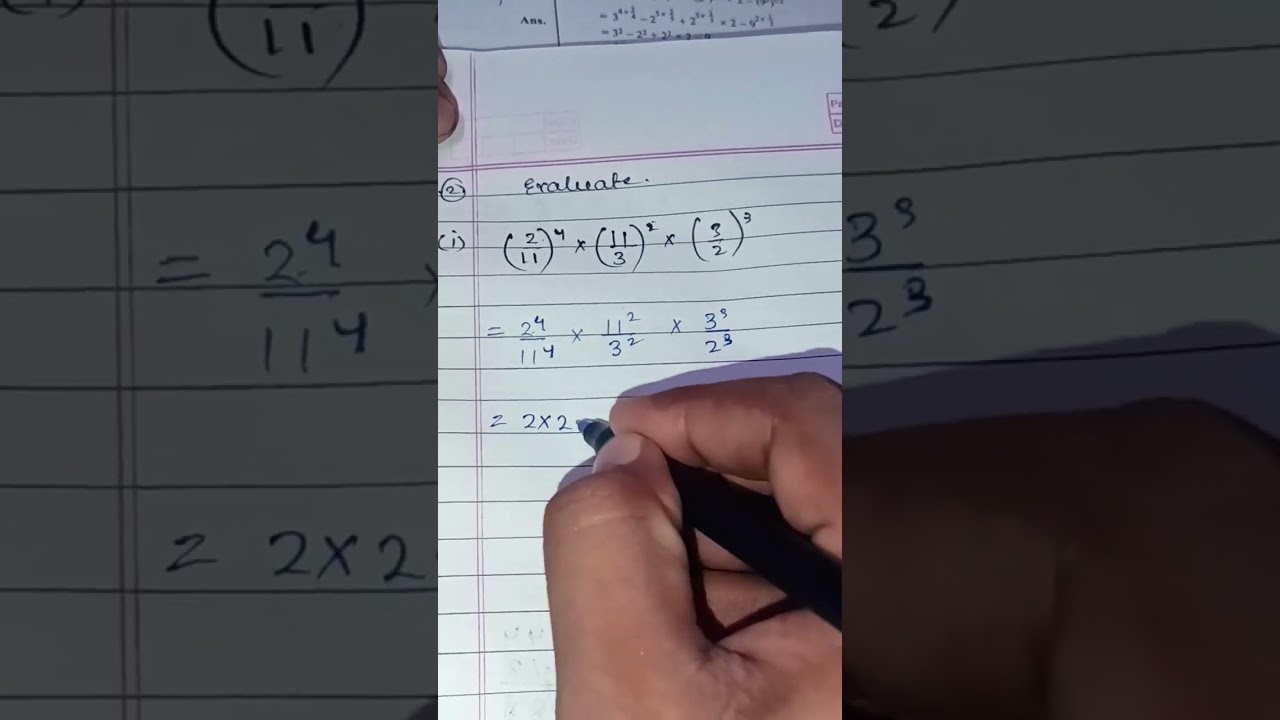 Ans.
= 3^{4×\frac{2}{4}} − 2^{5×\frac{2}{5}} + 2^{3×\frac{2}{3}} × 2 − 9^{2×\frac{1}{2}}
= 3² − 2² + 2² × 2 − 9
② Evaluate.
(i) (2/11)⁴ × (11/3)² × (3/2)³
= 2⁴/11⁴ × 11²/3² × 3³/2³
= 2×2